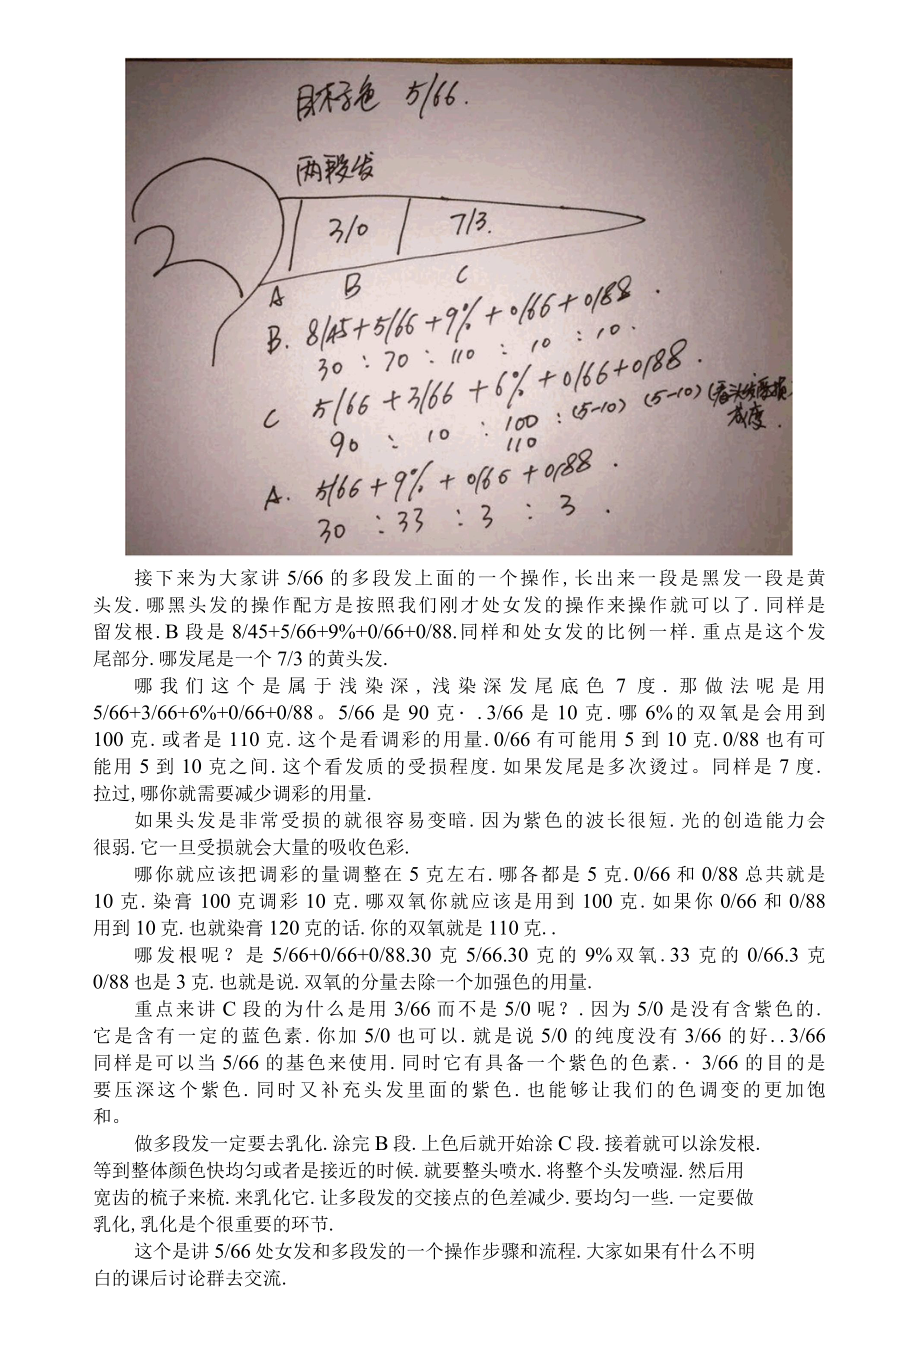 目标色 5/66.
两段发
3/0 7/3.
A B C
B. 8/45+5/66+9%+0/66+0/88.
30 : 70 : 110 : 10 : 10.
C 5/66+3/66+6%+0/66+0/88.
90 : 10 : 100 : (5-10) (5-10) (看头发受损
110 成度.
A. 5/66+9%+0/66+0/88.
30 : 33 : 3 : 3.
接下来为大家讲 5/66 的多段发上面的一个操作,长出来一段是黑发一段是黄
头发.哪黑头发的操作配方是按照我们刚才处女发的操作来操作就可以了.同样是
留发根.B 段是 8/45+5/66+9%+0/66+0/88.同样和处女发的比例一样.重点是这个发
尾部分.哪发尾是一个 7/3 的黄头发.
哪我们这个是属于浅染深,浅染深发尾底色 7 度.那做法呢是用
5/66+3/66+6%+0/66+0/88。5/66 是 90 克·.3/66 是 10 克.哪 6%的双氧是会用到
100 克.或者是 110 克.这个是看调彩的用量.0/66 有可能用 5 到 10 克.0/88 也有可
能用 5 到 10 克之间.这个看发质的受损程度.如果发尾是多次烫过。同样是 7 度.
拉过,哪你就需要减少调彩的用量.
如果头发是非常受损的就很容易变暗.因为紫色的波长很短.光的创造能力会
很弱.它一旦受损就会大量的吸收色彩.
哪你就应该把调彩的量调整在 5 克左右.哪各都是 5 克.0/66 和 0/88 总共就是
10 克.染膏 100 克调彩 10 克.哪双氧你就应该是用到 100 克.如果你 0/66 和 0/88
用到 10 克.也就染膏 120克的话.你的双氧就是 110 克..
哪发根呢？是 5/66+0/66+0/88.30 克 5/66.30 克的 9%双氧.33 克的 0/66.3 克
0/88 也是 3 克.也就是说.双氧的分量去除一个加强色的用量.
重点来讲 C 段的为什么是用 3/66 而不是 5/0 呢？.因为 5/0 是没有含紫色的.
它是含有一定的蓝色素.你加 5/0 也可以.就是说 5/0 的纯度没有 3/66 的好..3/66
同样是可以当 5/66 的基色来使用.同时它有具备一个紫色的色素.·3/66 的目的是
要压深这个紫色.同时又补充头发里面的紫色.也能够让我们的色调变的更加饱
和。
做多段发一定要去乳化.涂完 B 段.上色后就开始涂 C 段.接着就可以涂发根.
等到整体颜色快均匀或者是接近的时候.就要整头喷水.将整个头发喷湿.然后用
宽齿的梳子来梳.来乳化它.让多段发的交接点的色差减少.要均匀一些.一定要做
乳化,乳化是个很重要的环节.
这个是讲 5/66 处女发和多段发的一个操作步骤和流程.大家如果有什么不明
白的课后讨论群去交流.